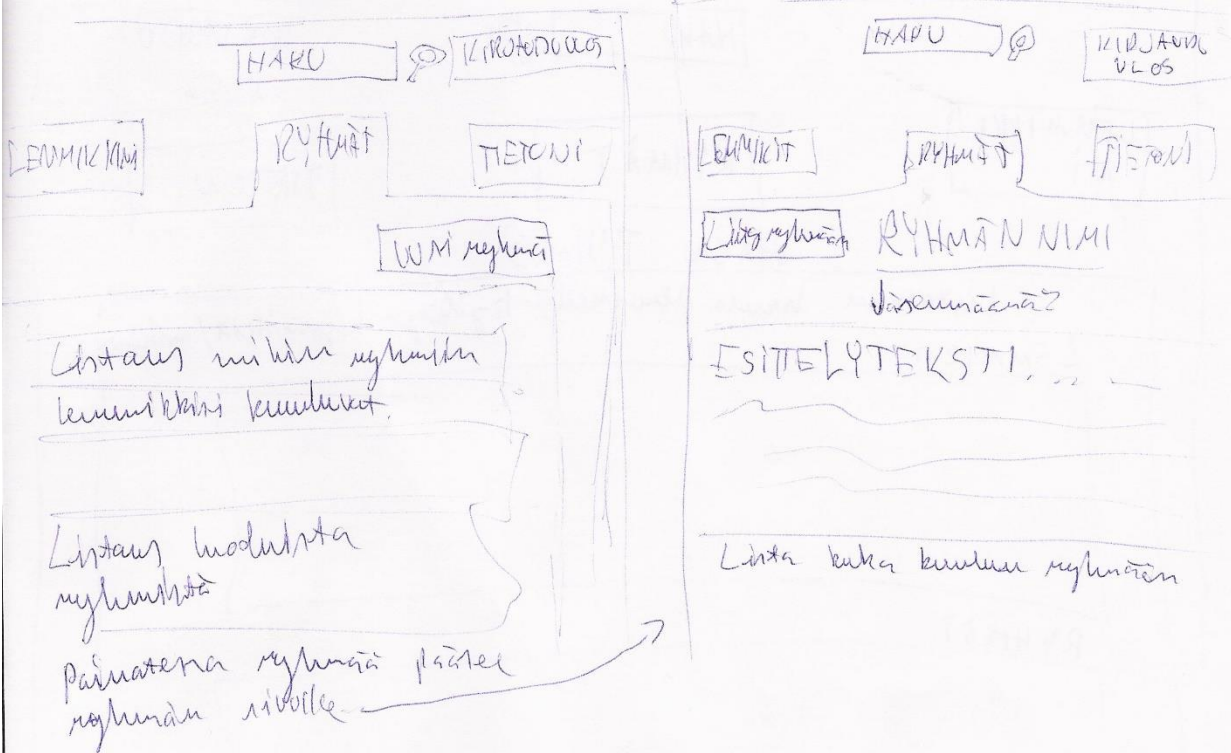 HAKU
KIRJAUDU ULOS
LEMMIKKINI
RYHMÄT
TIETONI
UUSI ryhmä
Listaus mihin ryhmiin
lemmikkisi kuuluvat.
Listaus luoduista
ryhmistä
Painatessa ryhmää pääsee
ryhmän sivulle
HAKU
KIRJAUDU
ULOS
LEMMIKIT
RYHMÄT
TIETONI
Liity ryhmään
RYHMÄN NIMI
Jäsenmäärä?
ESITTELYTEKSTI...
Lista kuka kuuluu ryhmään